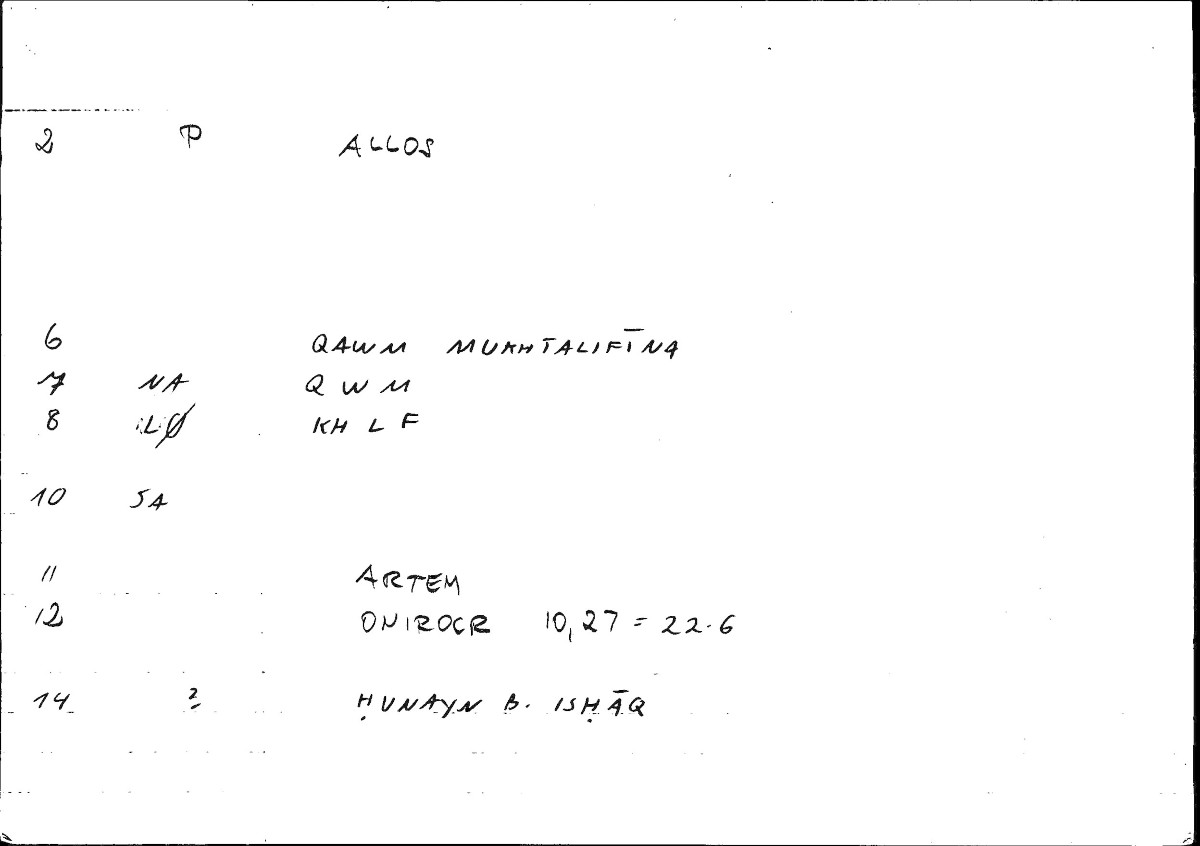 2 P ALLOS
6 QAWM MUKHTALIFĪNA
7 NA QWM
8 LØ KH L F
10 SA
11 ARTEM
12 ONIROCR 10,27 = 22.6
14 2 ḤUNAYN B. ISḤĀQ